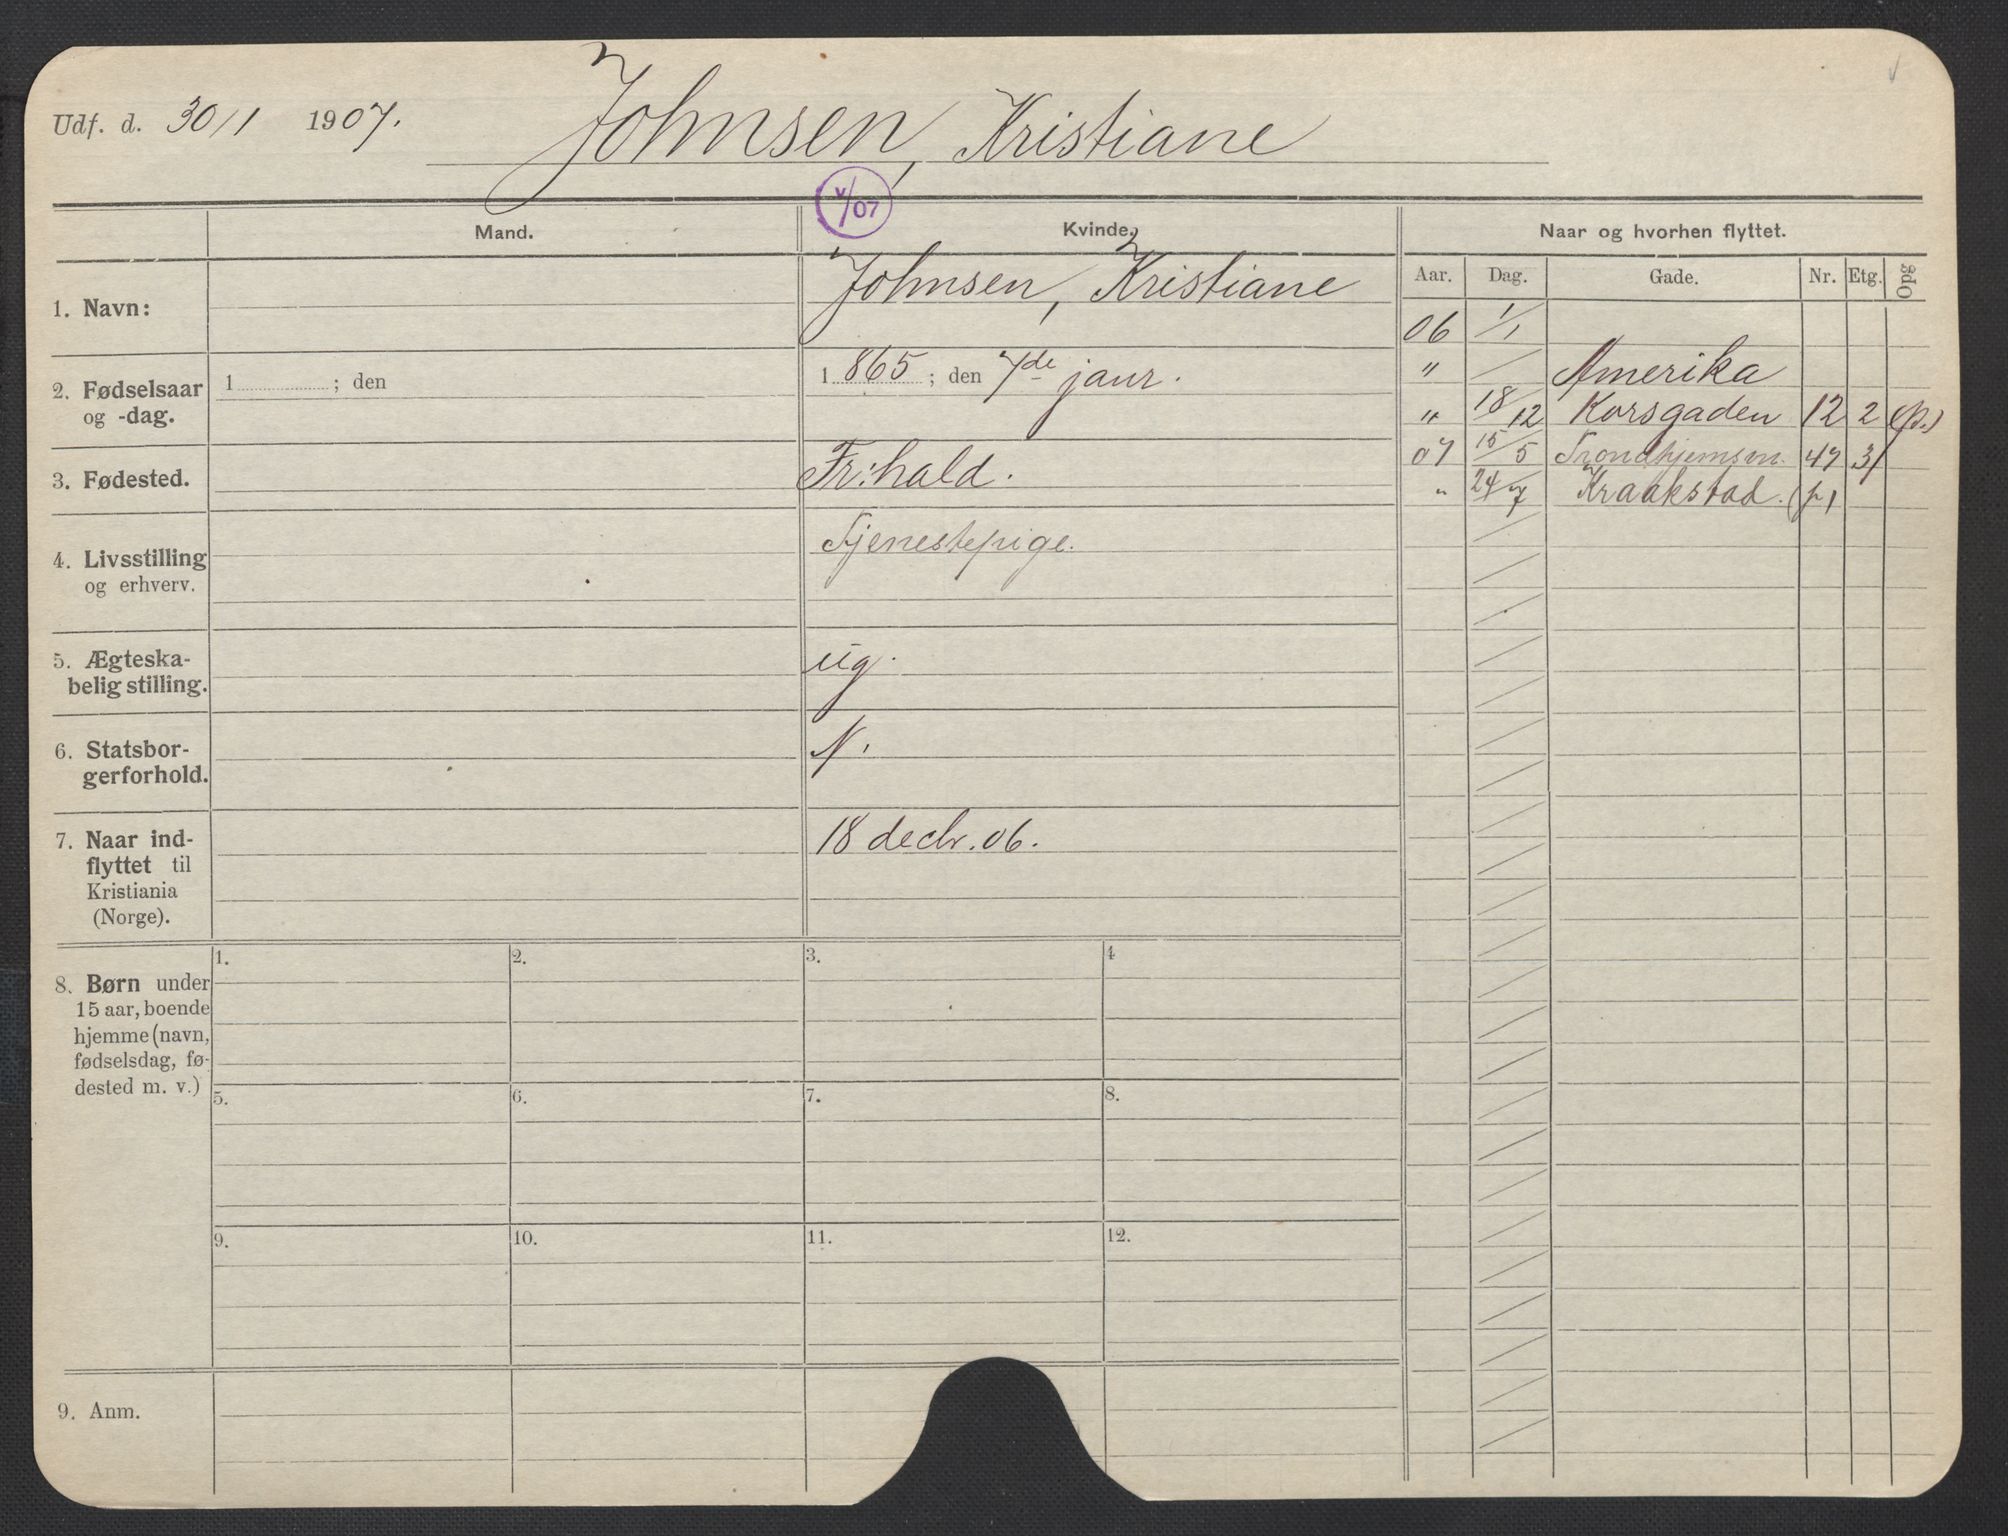 Udf. d. 30/1 1907. Johnsen, Kristiane
V/07
Mand. Kvinde. Naar og hvorhen flyttet.
Aar. Dag. Gade. Nr. Etg. Opg
1. Navn: Johnsen, Kristiane
06 1/1
2. Fødselsaar og -dag. 1 ; den 1 865 ; den 7de janr.
" Amerika
" 18/12 Korsgaden 12 2 (p.)
3. Fødested. Fr:hald.
07 15/5 Trondhjemsvn. 47 3/
" 24/7 Kraakstad. (p)
4. Livsstilling og erhverv. Tjenestepige.
5. Ægteska-
belig stilling. ug.
6. Statsbor-
gerforhold. N.
7. Naar ind-
flyttet til
Kristiania
(Norge). 18 decbr. 06.
8. Børn under
15 aar, boende
hjemme (navn,
fødselsdag, fø-
dested m. v.)
1. 2. 3. 4
5. 6. 7. 8.
9. 10. 11. 12.
9. Anm.